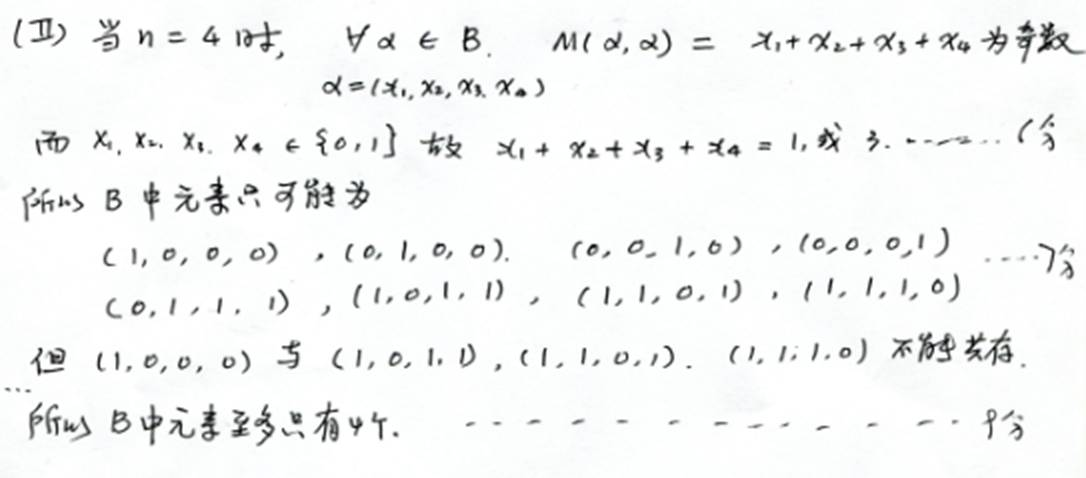 (Ⅱ) 当 n = 4 时, ∀α ∈ B. M(α,α) = x₁+x₂+x₃+x₄ 为奇数
α=(x₁,x₂,x₃.x₄)
而 x₁.x₂.x₃.x₄ ∈ {0,1} 故 x₁+x₂+x₃+x₄ = 1,或 3. ……… 分
所以 B 中元素只可能为
(1,0,0,0) ,(0,1,0,0). (0,0,1,0) ,(0,0,0,1) ……7分
(0,1,1,1) ,(1,0,1,1) , (1,1,0,1) ,(1,1,1,0)
但 (1,0,0,0) 与 (1,0,1,1) ,(1,1,0,1). (1,1,1,0) 不能共存.
…
所以 B 中元素至多只有4个. - - - - - - - - - - - - 9分